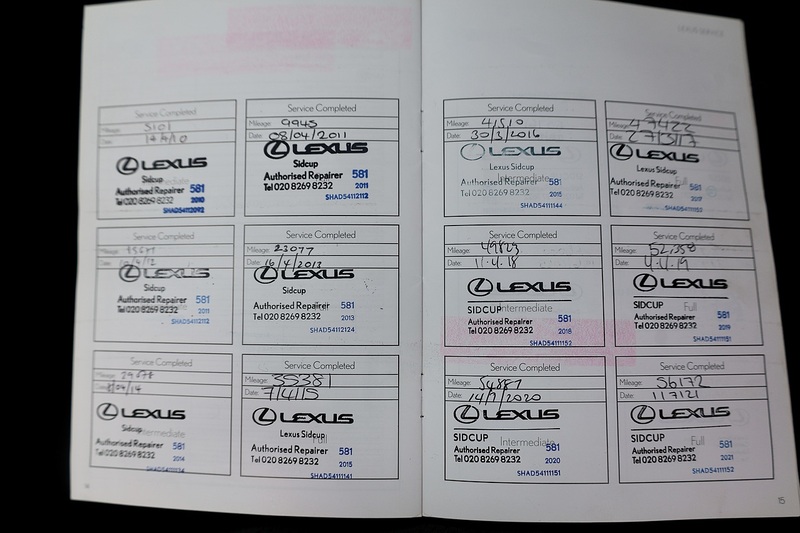 Service Completed
Mileage: 5101
Date:
LEXUS
Sidcup
Authorised Repairer 581
Tel 020 8269 8232 2010
SHAD54112092
Service Completed
Mileage: 9945
Date: 08/04/2011
LEXUS
Sidcup
Authorised Repairer 581
Tel 020 8269 8232 2011
SHAD54112112
Service Completed
LEXUS
Sidcup
Authorised Repairer 581
Tel 020 8269 8232 2011
SHAD54112112
Service Completed
Mileage: 23077
Date: 16/4/2013
LEXUS
Sidcup
Authorised Repairer 581
Tel 020 8269 8232 2013
SHAD54112124
Service Completed
Mileage: 29678
LEXUS
Sidcup
Intermediate
Authorised Repairer 581
Tel 020 8269 8232 2014
Service Completed
Mileage: 35381
Date: 7/4/15
LEXUS
Lexus Sidcup
Full
Authorised Repairer 581
Tel 020 8269 8232 2015
SHAD54111141
Service Completed
Mileage: 41510
Date: 30/3/2016
LEXUS
Lexus Sidcup
Intermediate
Authorised Repairer 581
Tel 020 8269 8232 2015
SHAD54111144
Service Completed
Mileage: 47422
Date: 27/3/17
LEXUS
Lexus Sidcup
Full
Authorised Repairer 581
Tel 020 8269 8232 2017
Service Completed
Mileage: 49829
Date: 11.4.18
LEXUS
SIDCUP
Intermediate
Authorised Repairer 581
Tel 020 8269 8232 2018
SHAD54111152
Service Completed
Mileage: 52,358
Date: 4.4.19
LEXUS
SIDCUP
Full
Authorised Repairer 581
Tel 020 8269 8232 2019
SHAD54111151
Service Completed
Mileage: 54887
Date: 14/7/2020
LEXUS
SIDCUP
Intermediate
Authorised Repairer 581
Tel 020 8269 8232 2020
SHAD54111151
Service Completed
Mileage: 56172
Date:
LEXUS
SIDCUP
Full
Authorised Repairer 581
Tel 020 8269 8232 2021
SHAD54111152
15